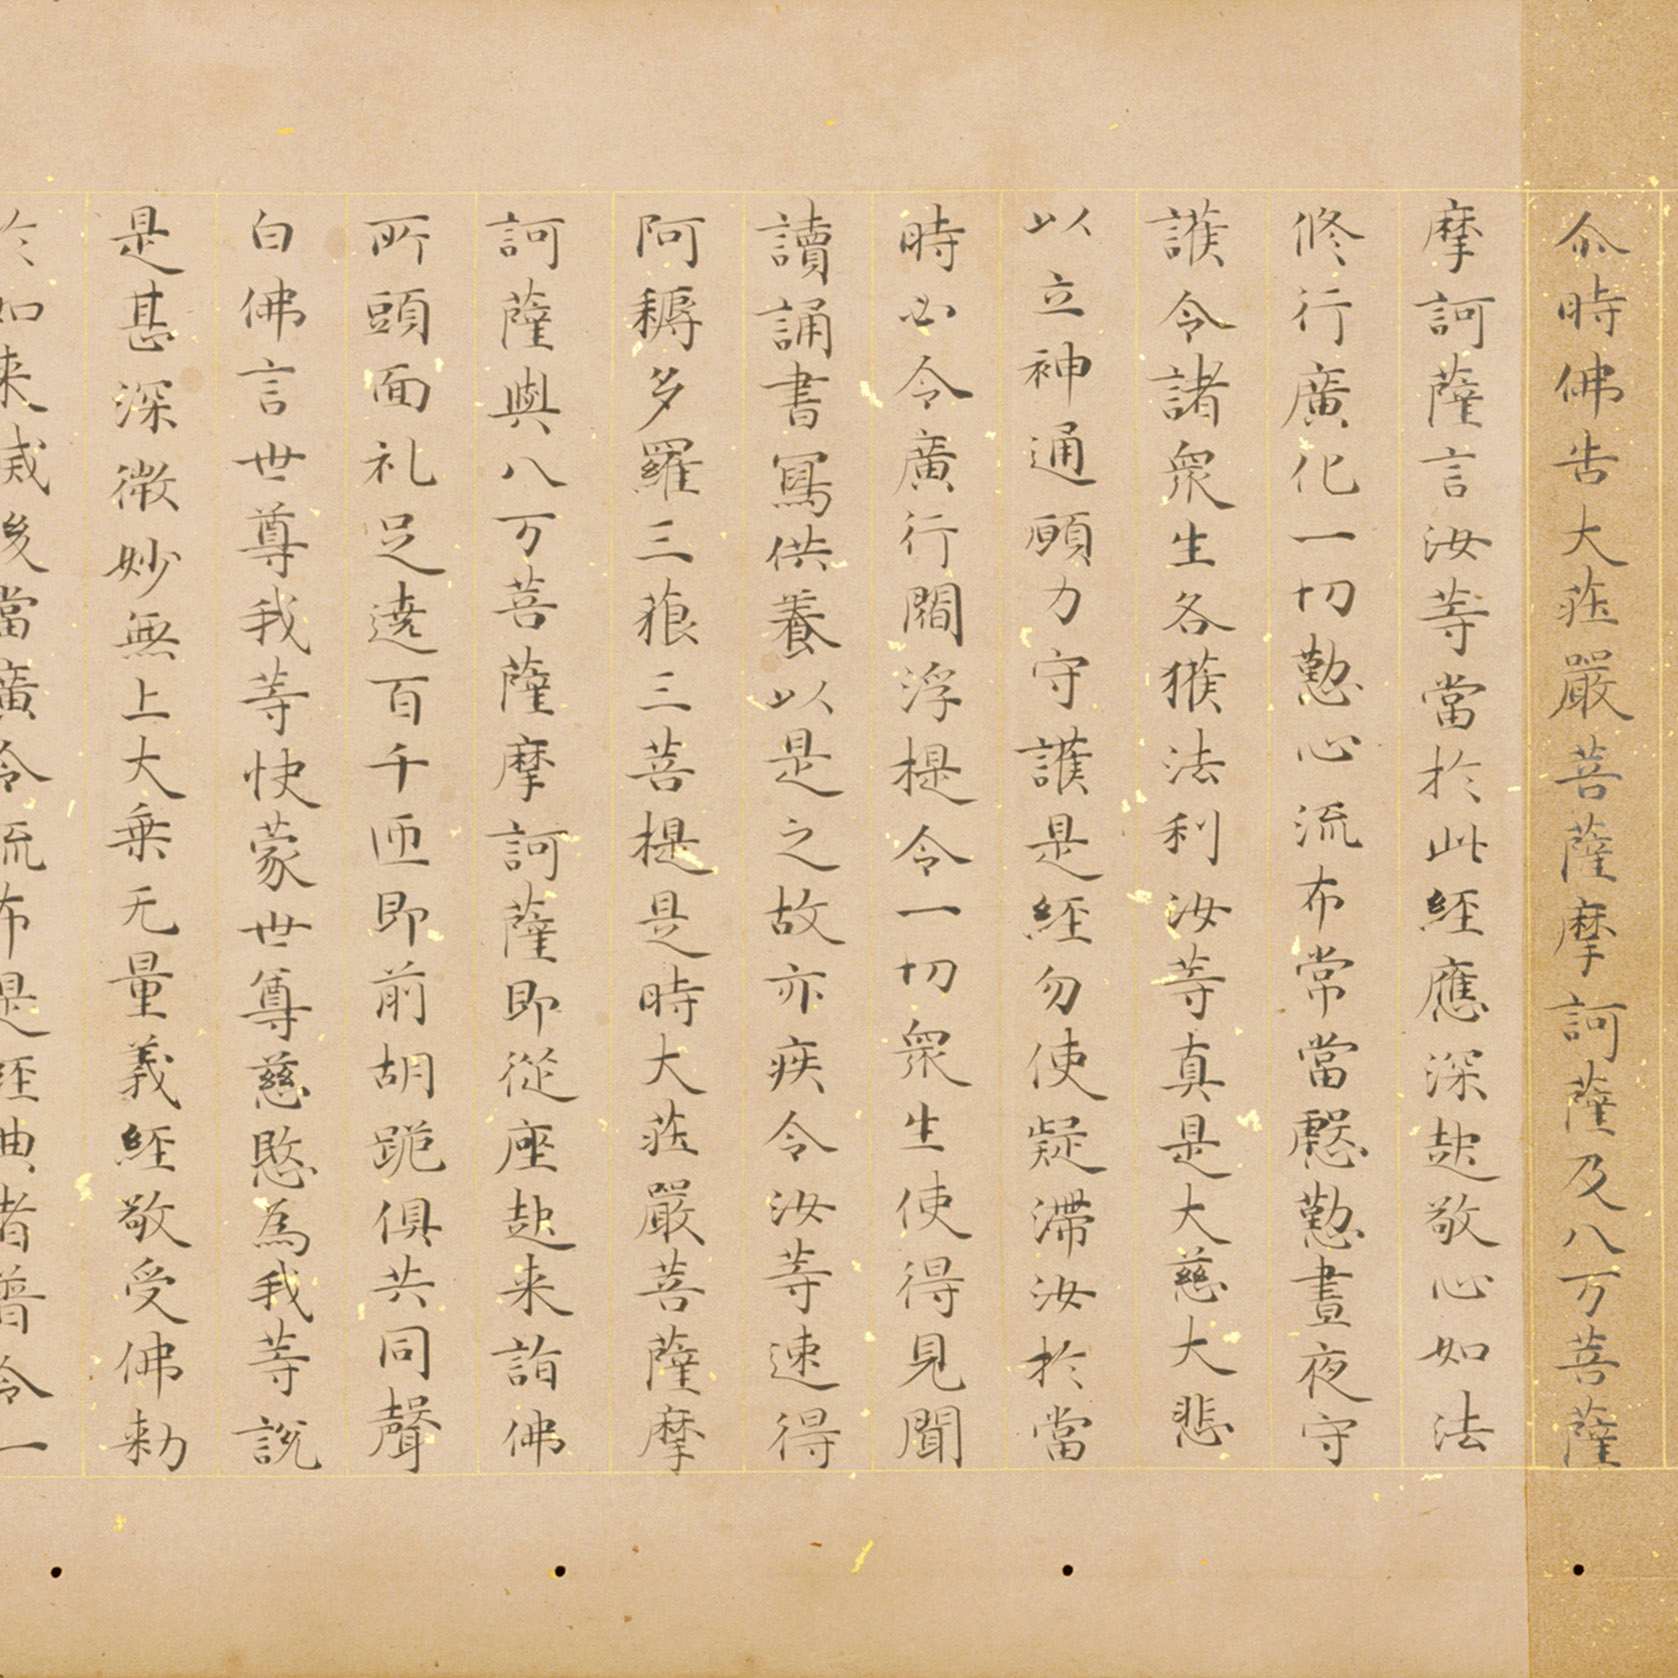 尒時佛告大莊嚴菩薩摩訶薩及八万菩薩
摩訶薩言汝等當於此經應深起敬心如法
修行廣化一切懃心流布常當慇懃晝夜守
護令諸衆生各獲法利汝等真是大慈大悲
以立神通願力守護是經勿使疑滯汝於當
時必令廣行閻浮提令一切衆生使得見聞
讀誦書寫供養以是之故亦疾令汝等速得
阿耨多羅三藐三菩提是時大莊嚴菩薩摩
訶薩與八万菩薩摩訶薩即從座起来詣佛
所頭面礼足遶百千匝即前胡跪俱共同聲
白佛言世尊我等快蒙世尊慈愍為我等說
是甚深微妙無上大乗无量義經敬受佛勅
於如来滅後當廣令流布是經典者普令一